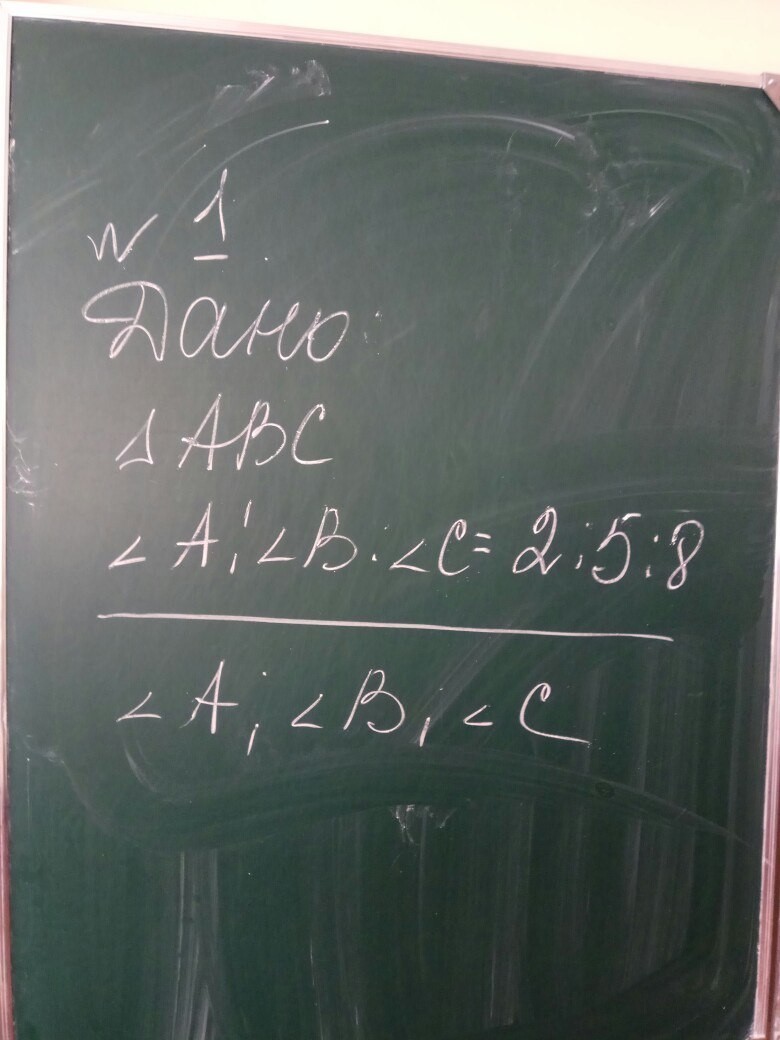 № 1
Дано:
△ABC
∠A:∠B:∠C=2:5:8
∠A; ∠B; ∠C